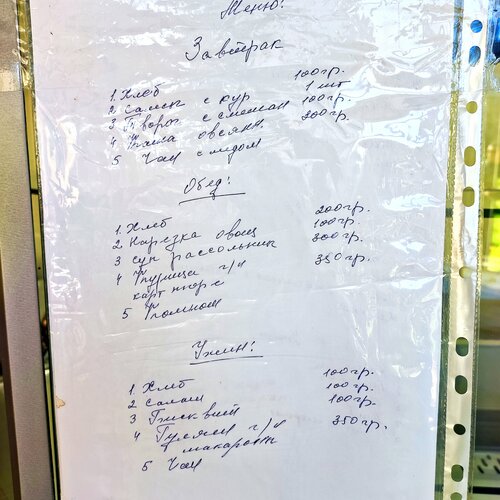 Меню:
Завтрак
1. Хлеб 100гр.
2 Салат с кур 1 шт
3 Творог с сметан 100гр.
4 Каша овсянн. 200гр.
5 Чай с медом
Обед:
1. Хлеб 200гр.
2 Нарезка овощ 100гр.
3 суп рассольник 300гр.
4 Курица г/н 350гр.
карт пюре
5 Компот
Ужин:
1. Хлеб 100гр.
2 Салат 100гр.
3 Бисквит 100гр.
4 Гуляш г/н 350гр.
макарон
5 Чай